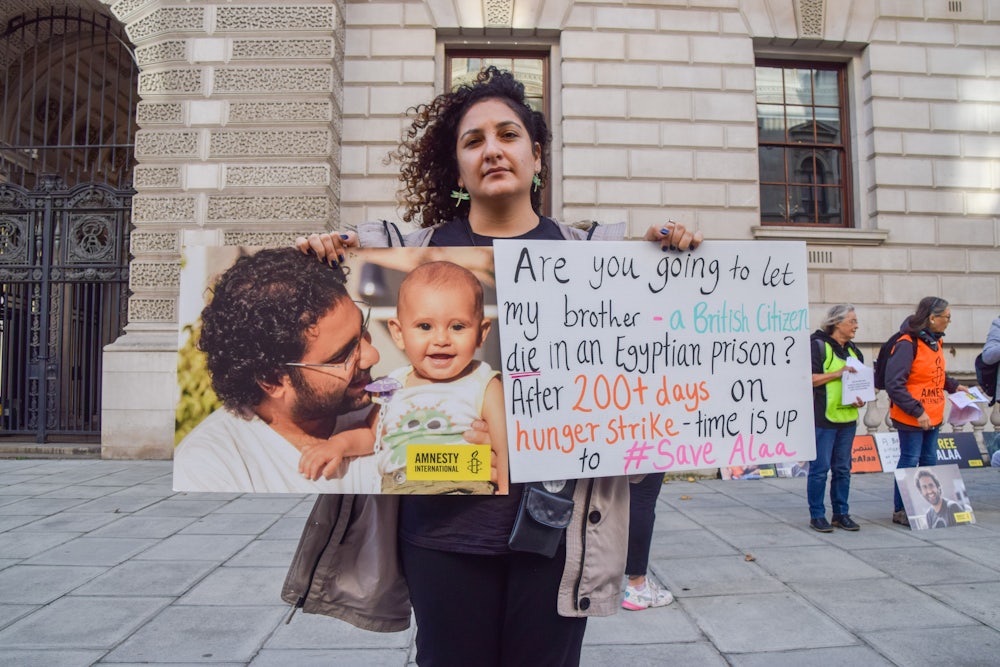 Are you going to let
my brother - a British Citizen
die in an Egyptian prison?
After 200+ days on
hunger strike - time is up
to #Save Alaa
AMNESTY
INTERNATIONAL
FREE
ALAA